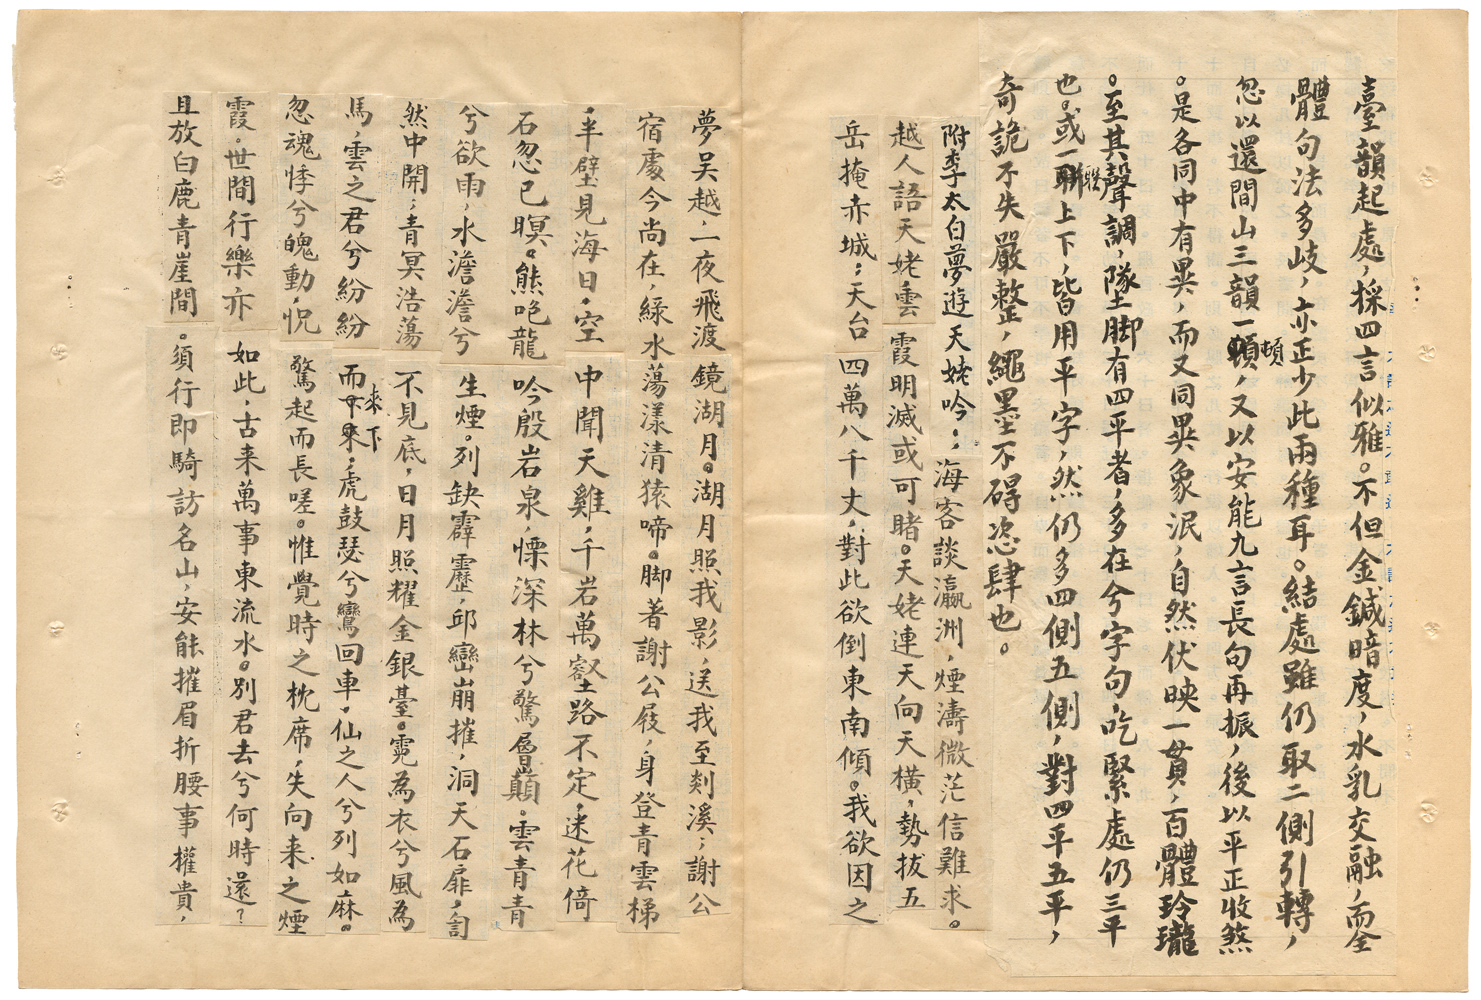 臺韻起處，採四言似雅。不但金鍼暗度，水乳交融，而全
體句法多歧，亦正少此兩種耳。結處雖仍取二側引轉，
忽以還間山三韻一頓，又以安能九言長句再振，後以平正收煞
。是各同中有異，而又同異象泯，自然伏映一貫，百體玲瓏
。至其聲調，墜脚有四平者，多在兮字句，吃緊處仍三平
也。或一聯上下，皆用平字，然仍多四側五側，對四平五平，
奇詭不失嚴整，繩墨不碍恣肆也。
附李太白夢遊天姥吟：海客談瀛洲，煙濤微茫信難求。
越人語天姥，雲霞明滅或可睹。天姥連天向天橫，勢拔五
岳掩赤城；天台四萬八千丈，對此欲倒東南傾。我欲因之
夢吴越，一夜飛渡鏡湖月。湖月照我影，送我至剡溪；謝公
宿處今尚在，綠水蕩漾清猿啼。脚著謝公屐，身登青雲梯
，半壁見海日，空中聞天雞，千岩萬壑路不定，迷花倚
石忽已暝。熊咆龍吟殷岩泉，慄深林兮驚層顛。雲青青
兮欲雨，水澹澹兮生煙。列缺霹靂，邱巒崩摧，洞天石扉，訇
然中開；青冥浩蕩不見底，日月照耀金銀臺。霓為衣兮風為
馬，雲之君兮紛紛而來下，虎鼓瑟兮鸞回車，仙之人兮列如麻。
忽魂悸兮魄動，怳驚起而長嗟。惟覺時之枕席，失向来之煙
霞。世間行樂亦如此，古来萬事東流水。別君去兮何時還？
且放白鹿青崖間。須行即騎訪名山，安能摧眉折腰事權貴，